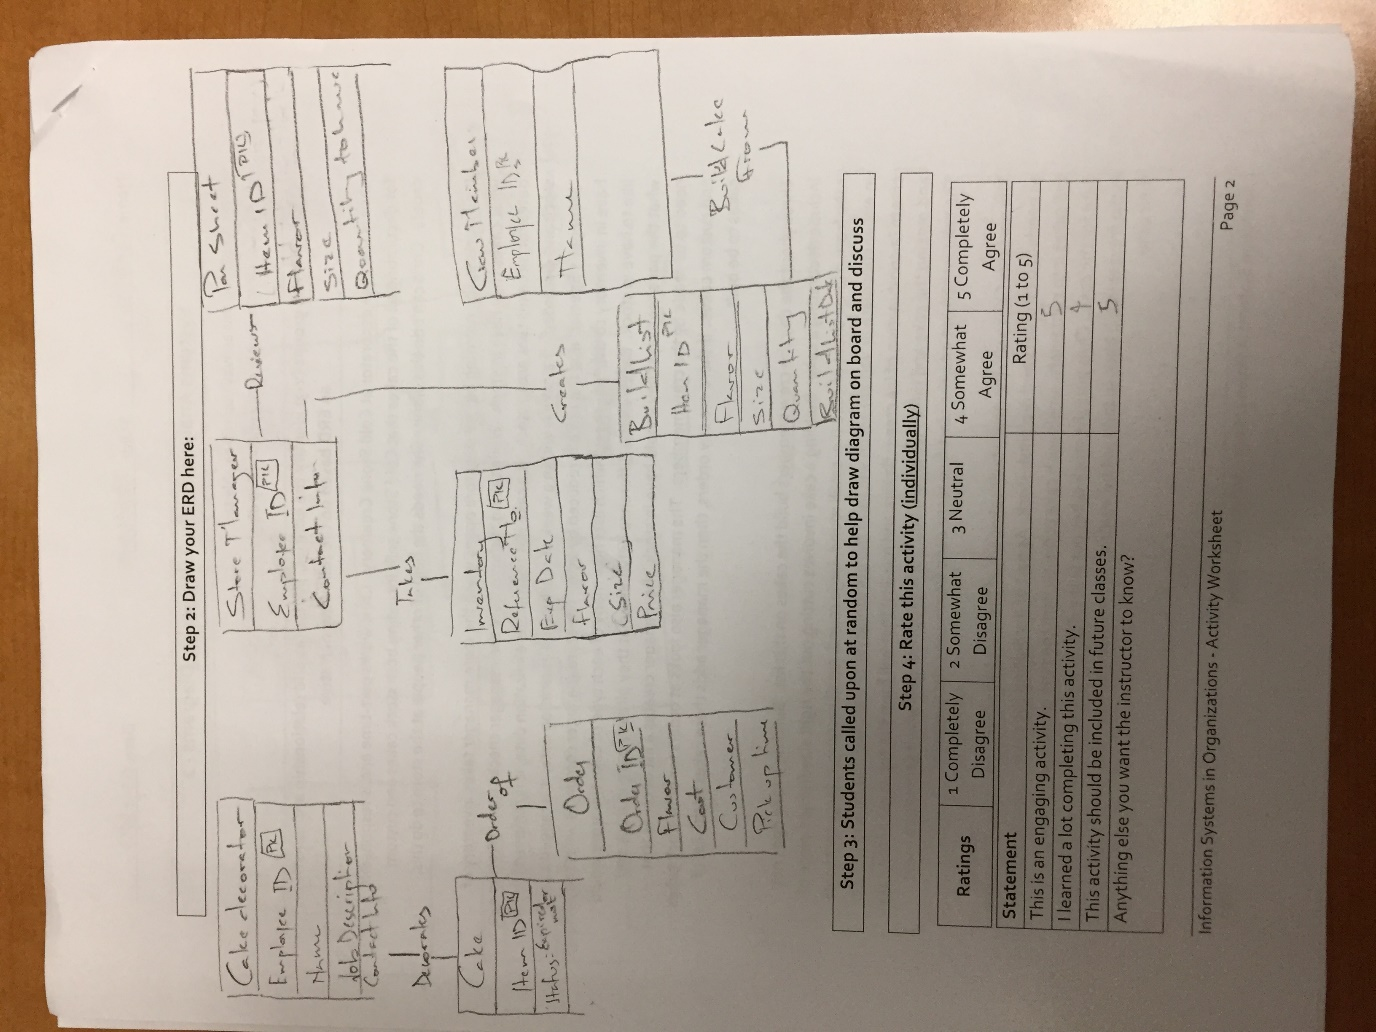 Step 2: Draw your ERD here:
Cake decorator
Employee ID PK
Name
Job Description
Contact Info
Decorates
Cake
Item ID PK
Status: Expired or not
Order of
Order
Order ID PK
Flavor
Cost
Customer
Pick up time
Store Manager
Employee ID PK
Contact Info
Takes
Inventory
Reference # PK
Exp Date
Flavor
Size
Price
Reviews
Par Sheet
Item ID PK
Flavor
Size
Quantity to have
Creates
Build List
Item ID PK
Flavor
Size
Quantity
Build List Date
Crew Member
Employee ID PK
Name
Build Cake From
Step 3: Students called upon at random to help draw diagram on board and discuss
Step 4: Rate this activity (individually)
Ratings 1 Completely Disagree 2 Somewhat Disagree 3 Neutral 4 Somewhat Agree 5 Completely Agree
Statement Rating (1 to 5)
This is an engaging activity. 5
I learned a lot completing this activity. 4
This activity should be included in future classes. 5
Anything else you want the instructor to know?
Information Systems in Organizations - Activity Worksheet Page 2